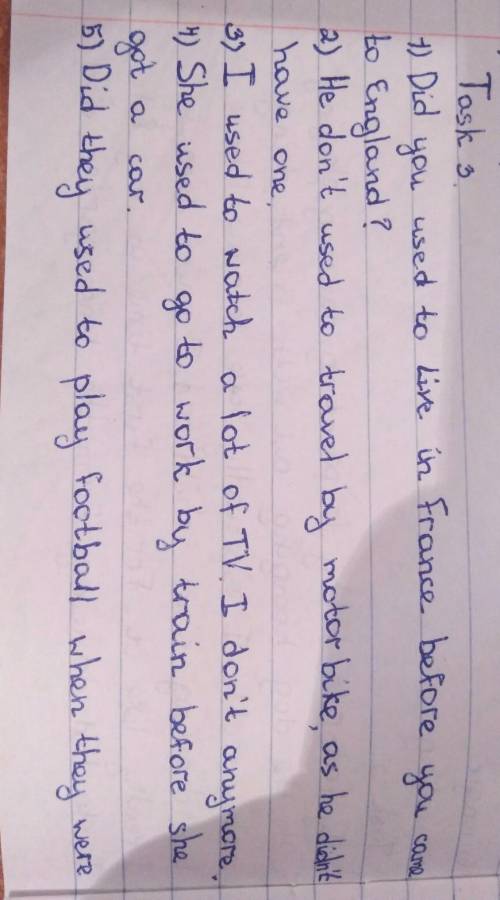 Task 3.
1) Did you used to live in France before you came
to England?
2) He don't used to travel by motorbike, as he didn't
have one.
3) I used to watch a lot of TV. I don't anymore.
4) She used to go to work by train before she
got a car.
5) Did they used to play football when they were